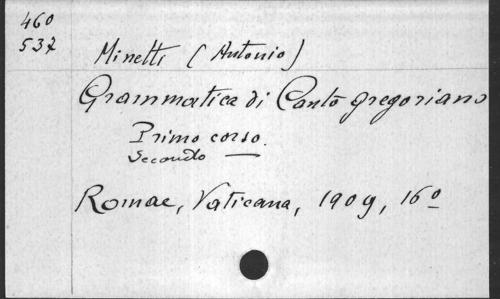 460
537
Minetti (Antonio)
Grammatica di Canto gregoriano
Primo corso.
Secondo —
Romae, Vaticana, 1909, 16º